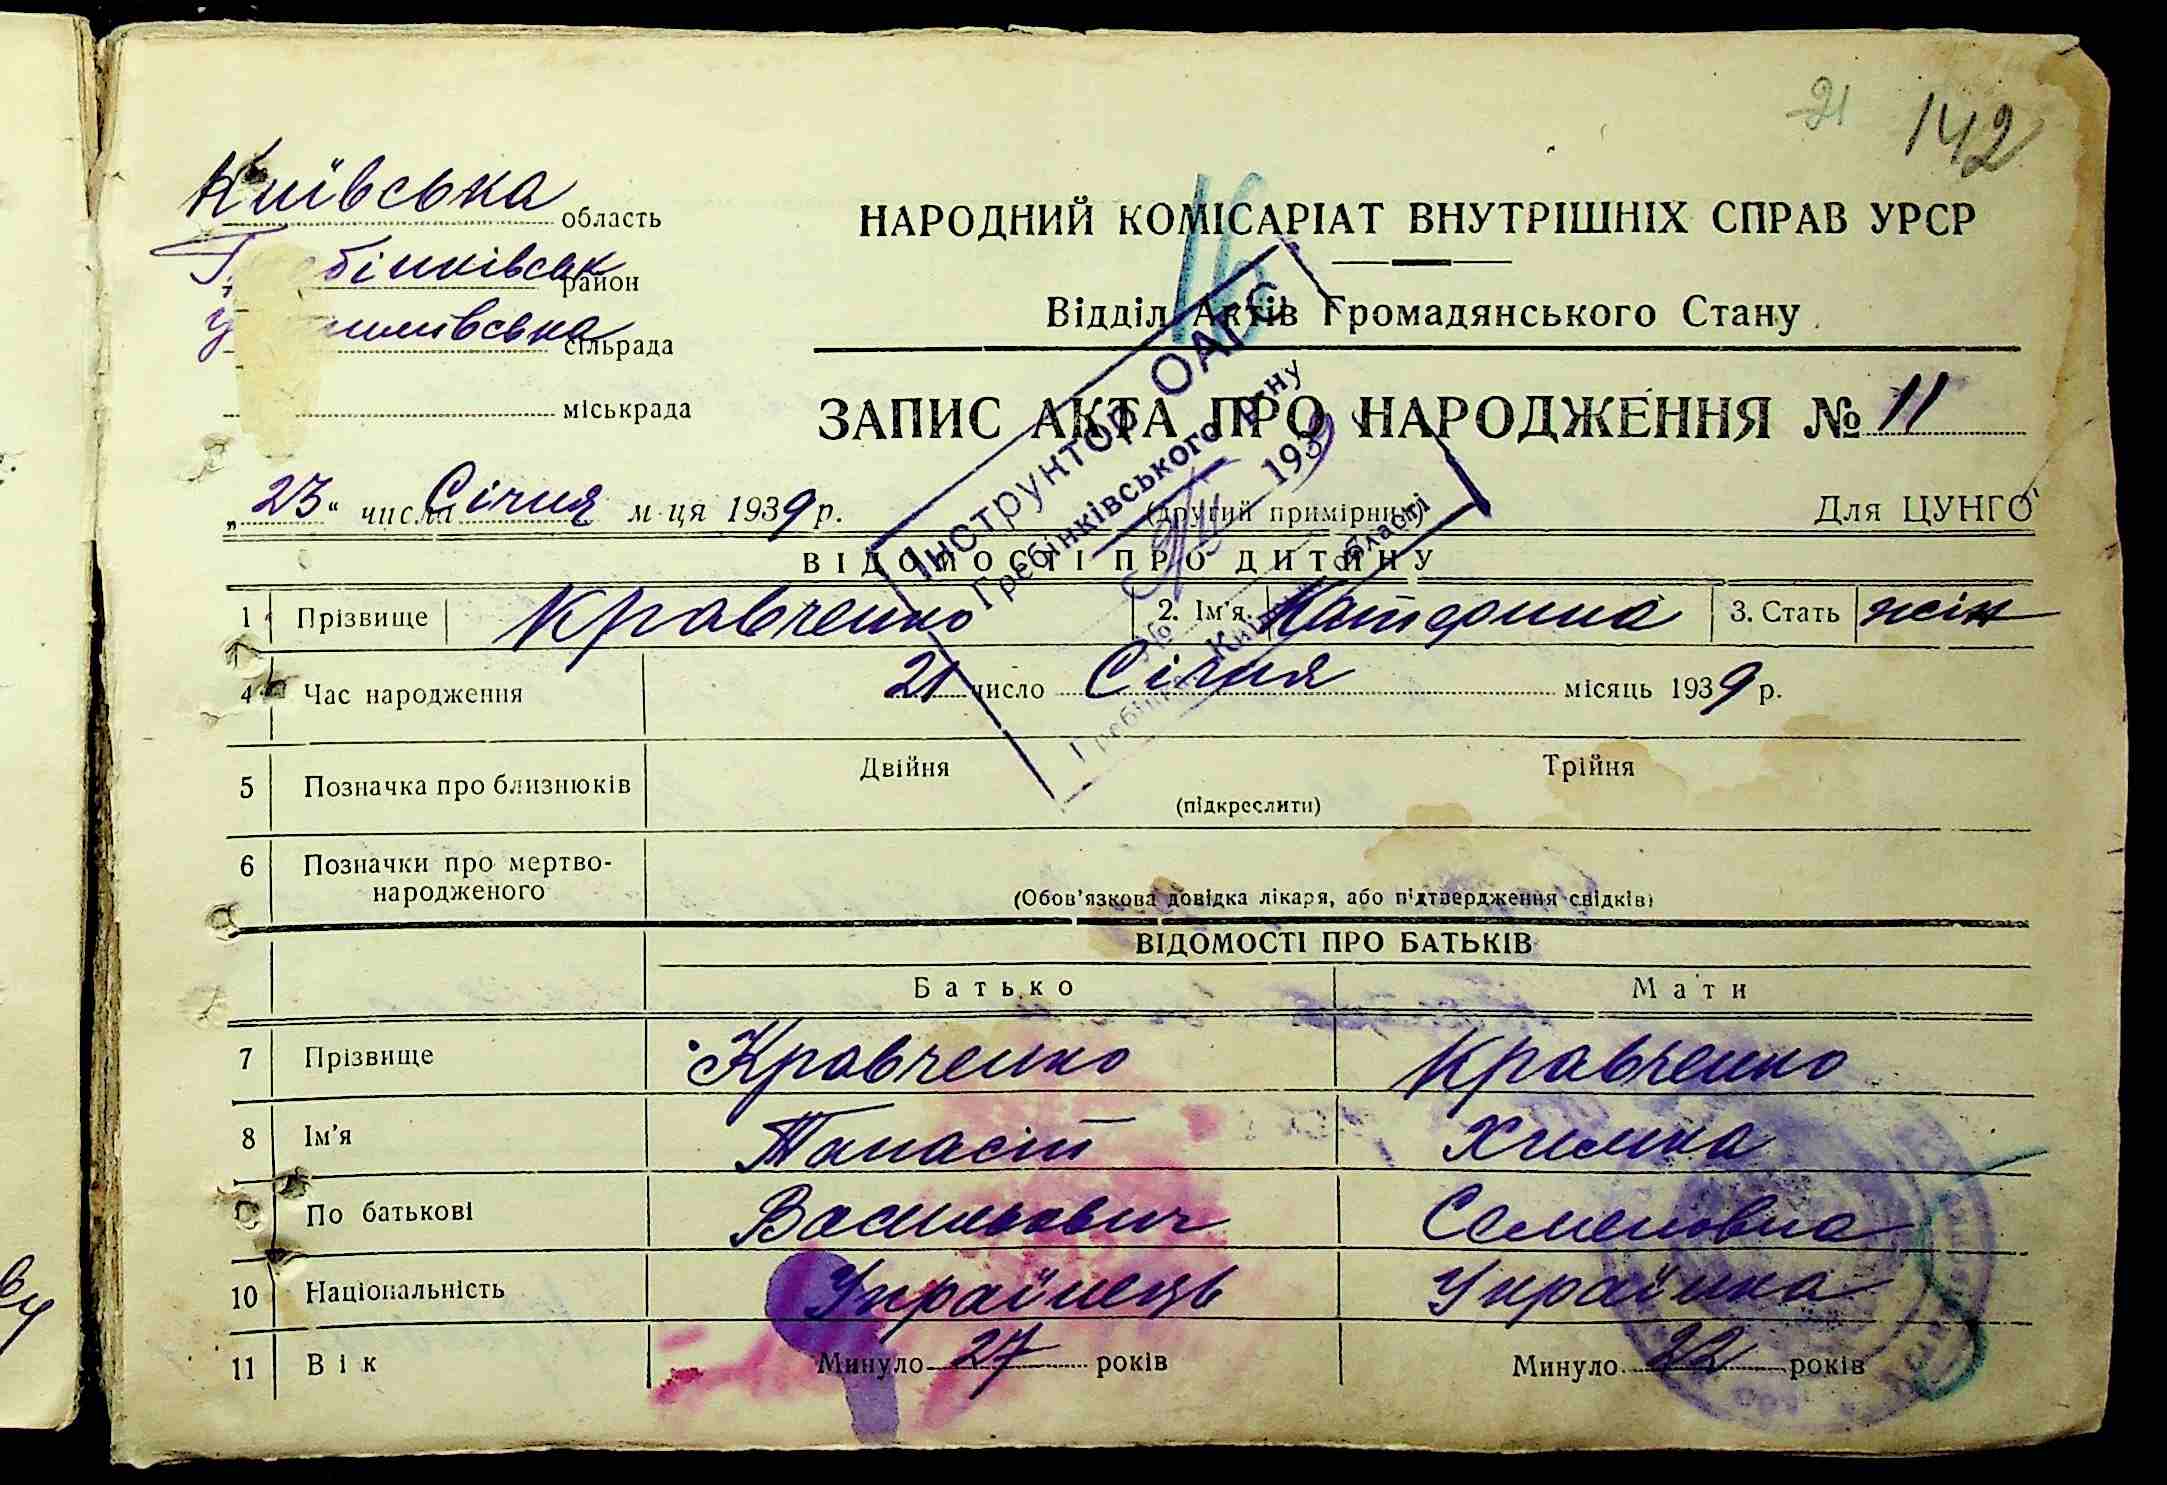 21 142
Київська область
район
сільрада
міськрада
НАРОДНИЙ КОМІСАРІАТ ВНУТРІШНІХ СПРАВ УРСР
16
Відділ Актів Громадянського Стану
ЗАПИС АКТА ПРО НАРОДЖЕННЯ № 11
„23“ числа Січня м-ця 1939 р. (другий примірник) Для ЦУНГО
Інструктор ОАГС
Гребінківського р-ну
193
Київської області
ВІДОМОСТІ ПРО ДИТИНУ
1 Прізвище Кравченко 2. Ім'я Катерина 3. Стать жін
4 Час народження 21 число Січня місяць 1939 р.
5 Позначка про близнюків Двійня Трійня
(підкреслити)
6 Позначки про мертво-
народженого
(Обов'язкова довідка лікаря, або підтвердження свідків)
ВІДОМОСТІ ПРО БАТЬКІВ
Батько Мати
7 Прізвище Кравченко Кравченко
8 Ім'я Панасій Химка
9 По батькові Васильович Семеновна
10 Національність Українець Українка
11 Вік Минуло 27 років Минуло 22 років